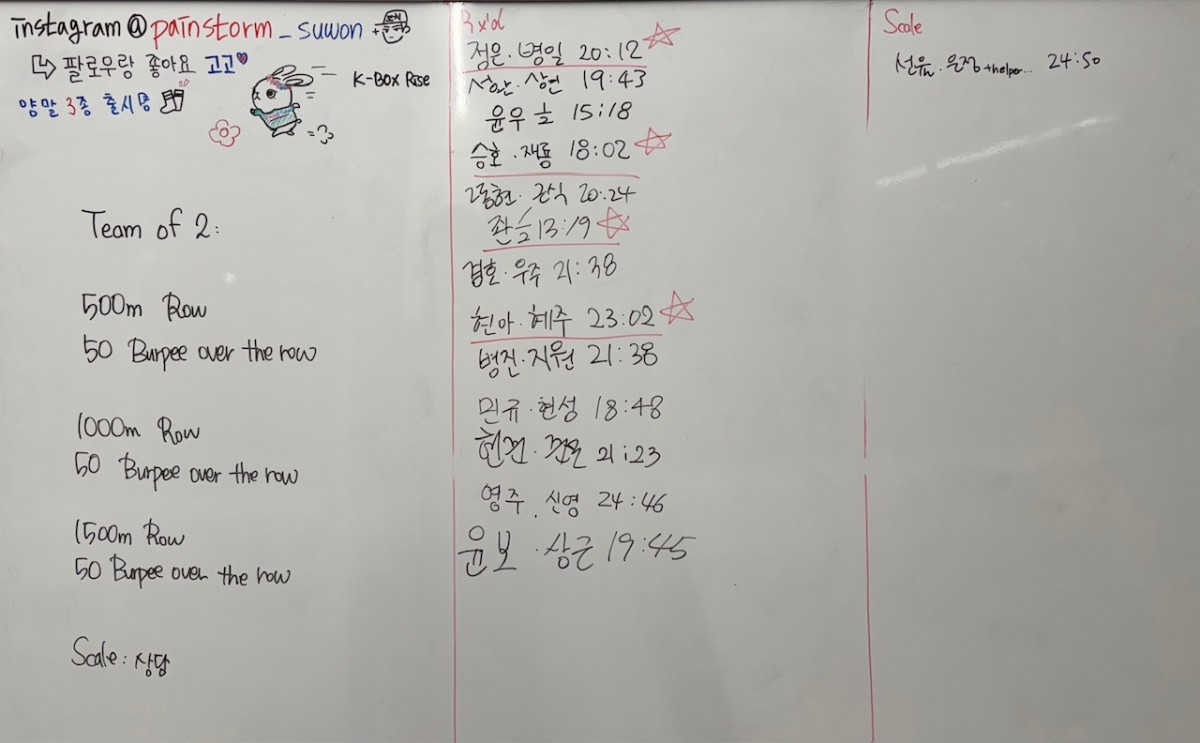 instagram@painstorm_suwon
↳ 팔로우랑 좋아요 고고♥
양말 3종 출시중
K-BOX Rise
Team of 2:
500m Row
50 Burpee over the row
1000m Row
50 Burpee over the row
1500m Row
50 Burpee over the row
Scale: 상담
Rx'd
정은·병일 20:12
19:43
윤우 15:18
승호·재룡 18:02
20:24
13:19
우주 21:38
현아·혜주 23:02
병진·지원 21:38
민규·현성 18:48
21:23
영주·신영 24:46
윤보·상근 19:45
Scale
+helper... 24:50